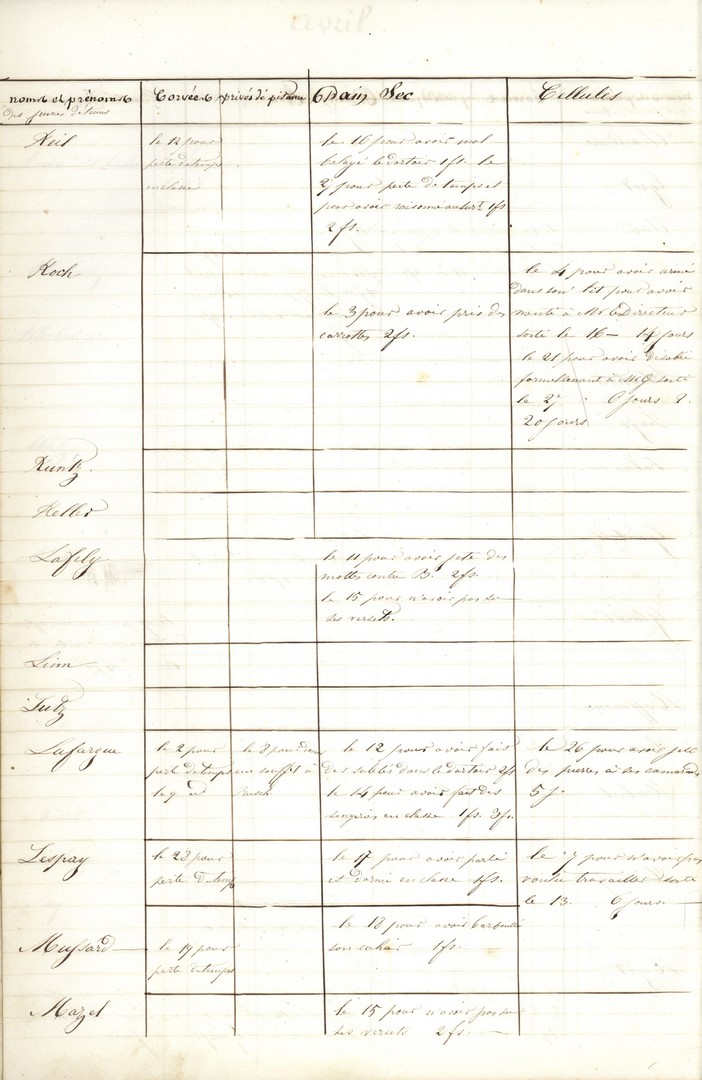 avril
noms et prénoms Corvées privés de pitance Pain Sec Cellules
des jeunes détenus
Keil
le 12 pour
perte de temps
en classe
le 16 pour avoir mal
balayé le dortoir 1fs. le
27 pour perte de temps et
pour avoir raisonné au surt 1fs
2 fs.
Koch
le 3 pour avoir pris des
carrottes 2fs.
le 4 pour avoir
dans son lit pour avoir
menti à Mr le Directeur
sorti le 16 — 14 jours
le 21 pour avoir désobéi
formellement à sorti
le 27 6 jours
20 jours
Kuntz.
Keller
Lafily
le 11 pour avoir jeté des
mottes contre B. 2fs.
le 15 pour n'avoir pas su
ses versets.
Lion
Lutz
Lafargue
le 2 pour
perte de temps
le 9 id
le 8 pour
un soufflet à
le 12 pour avoir fait
des saletés dans le dortoir 2fs
le 14 pour avoir fait des
en classe 1fs. 3fs.
le 26 pour avoir jeté
des pierres à ses camarades
5 j.
Lespay
le 23 pour
perte d. temps
le 17 pour avoir parlé
et dormi en classe 1fs.
le 7 pour n'avoir pas
voulu travailler sorti
le 13. 6 jours. —
Mussard
le 19 pour
perte de temps
le 18 pour avoir barbouillé
son cahier 1fs.
Mazel
le 15 pour n'avoir pas su
ses versets 2 fs. —